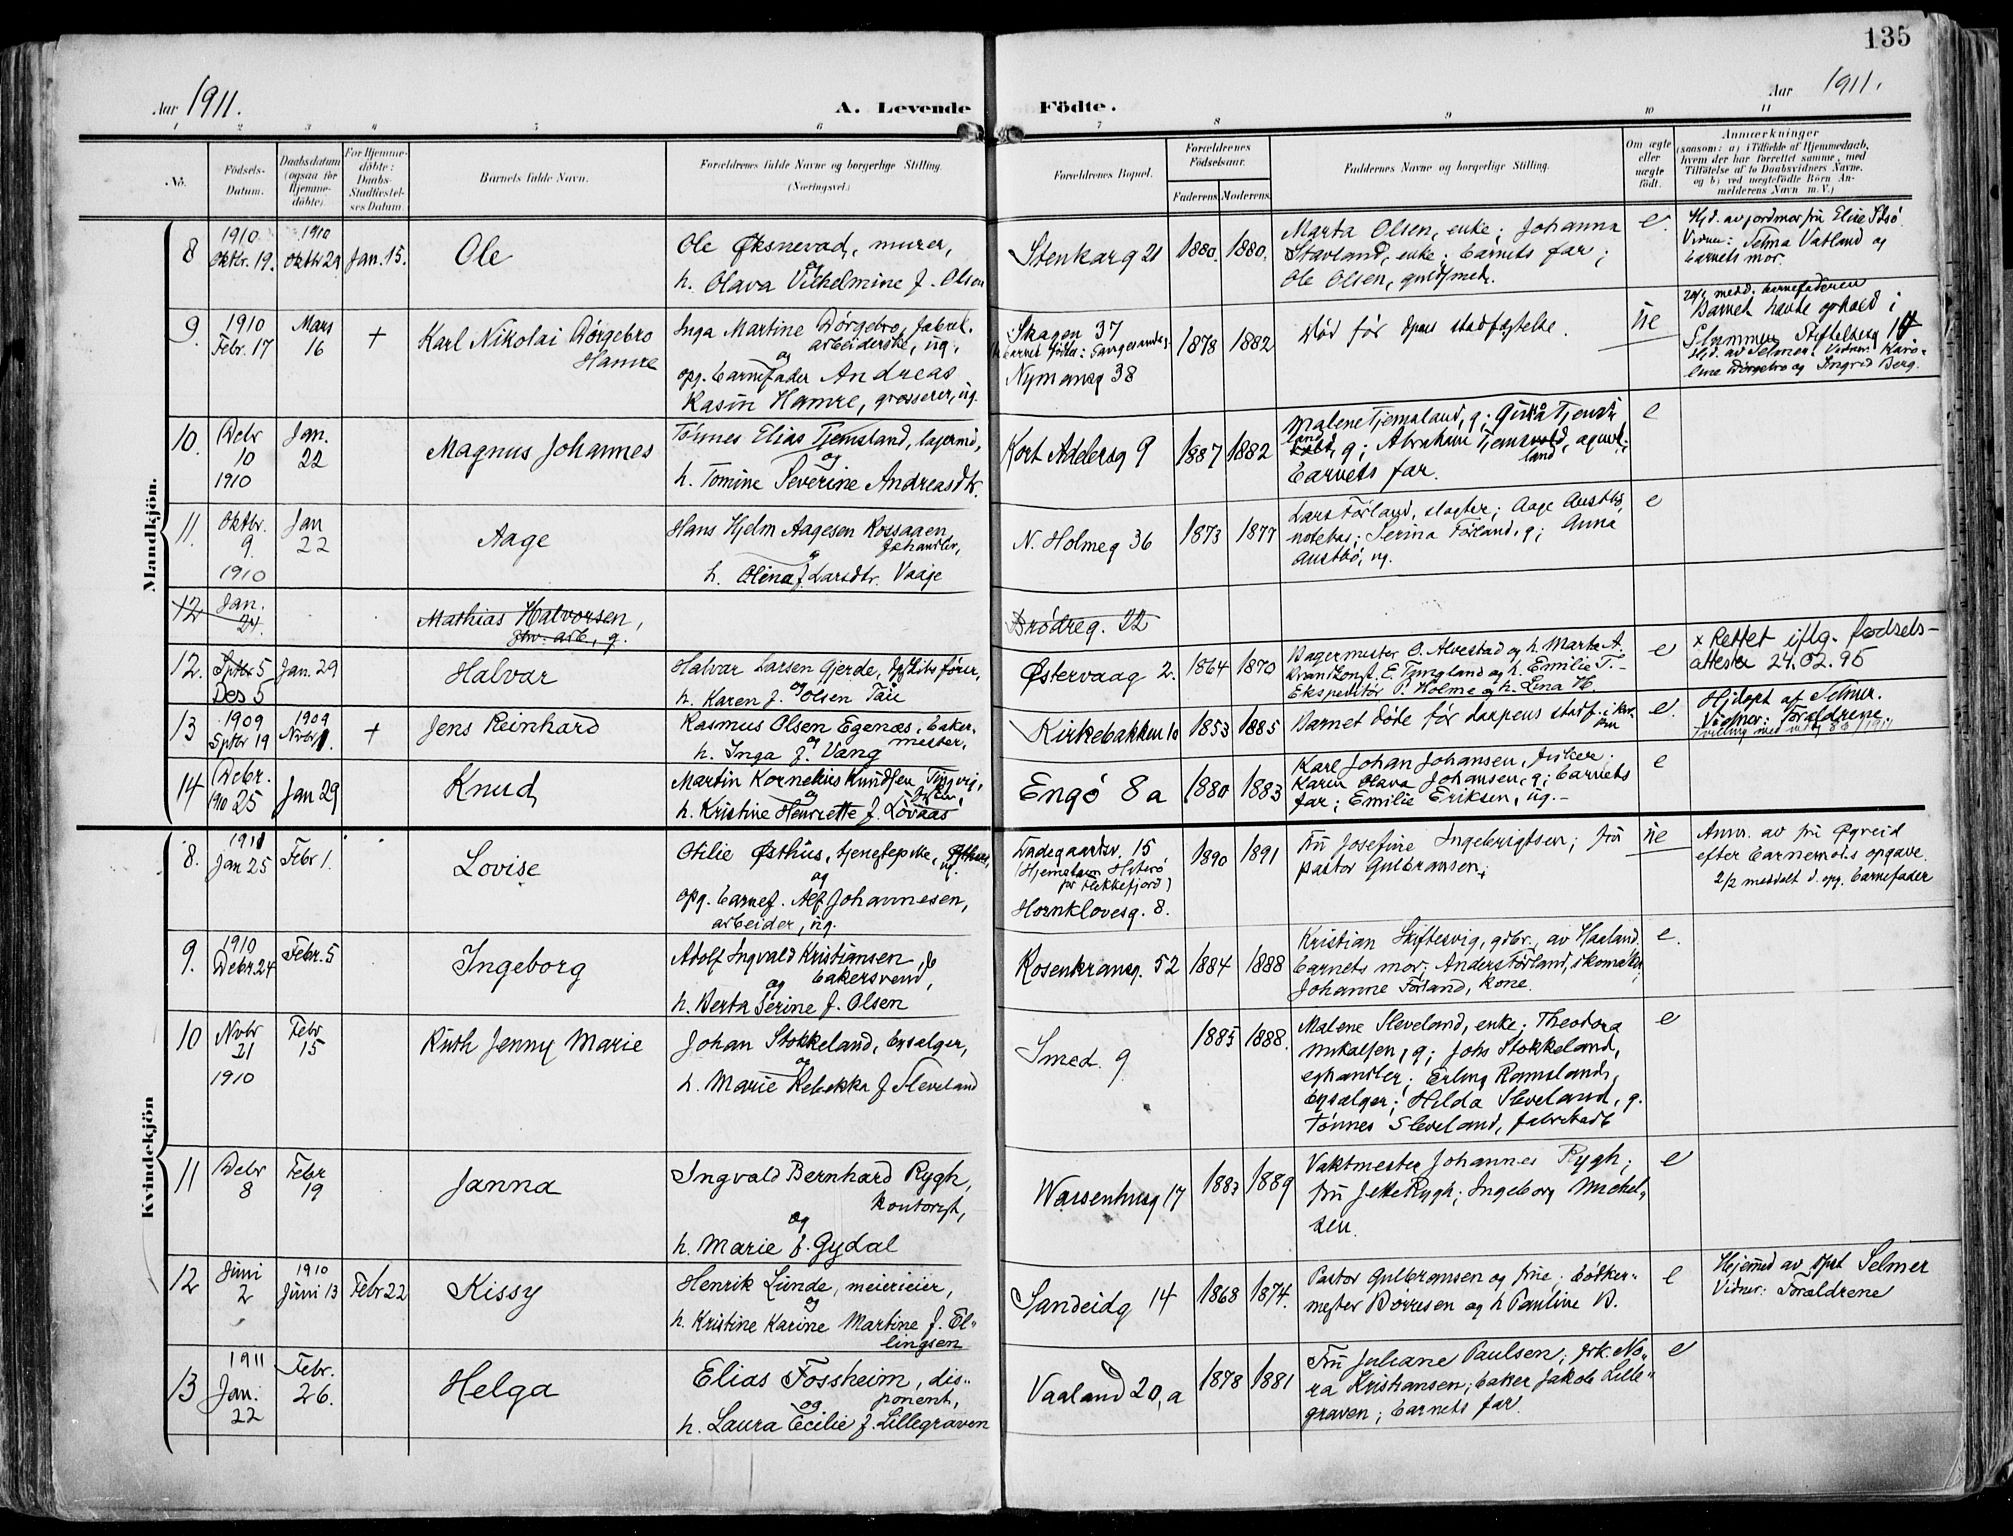 135
Aar 1911.
A. Levende Födte.
Aar 1911.
1 2 3 4 5 6 7 8 9 10 11
No.
Födsels-
Datum.
Daabsdatum
(ogsaa for
Hjemme-
döbte)
For Hjemme-
döbte:
Daabs-
Stadfæstel-
ses Datum.
Barnets fulde Navn.
Forældrenes fulde Navne og borgerlige Stilling.
(Næringsvei.)
Forældrenes Bopæl.
Forældrenes
Fødselsaar.
Faderens. Moderens.
Faddernes Navne og borgerlige Stilling.
Om ægte
eller
uægte
født.
Anmærkninger
(saasom: a) i Tilfælde af Hjemmedaab,
hvem der har forrettet samme, med
Tilføielse af to Daabsvidners Navne,
og b) ved uægtefødte Börn An-
melderens Navn m. V.)
Mandkjön.
8 1910 Oktbr. 19. 1910 Oktbr 29 Jan. 15. Ole
Ole Øksnevad, murer,
og
h. Olava Vilhelmine f. Olsen
Stenkarg 21 1880. 1880.
Marta Olsen, enke; Johanna
Stavland, enke; barnets far;
Ole Olsen, guldsmed.
e.
Hjd. av jordmor fru Elise
Vidner: Selma Vatland og
barnets mor.
9. 1910 Febr. 17 Mars 16 + Karl Nikolai Börgebro
Hamre
Inga Martine Börgebro,
arbeiderske, ug.
og
opg. barnefader Andreas
Kasin Hamre, grosserer, ug.
Skagen 37
Nymansg 38
1878 1882
Död før dåpens stadfæstelse.
ue
medd. barnefaderen
Barnet havde ophold i
Hjd. av Selmer. Vidner: Karo-
line Börgebro og Ingrid Berg.
10. Debr 10 1910 Jan. 22 Magnus Johannes
Tönnes Elias Tjemsland,
og
h. Tomine Severine Andreasdtr.
Kort Adelersg 9 1887 1882
Malene Tjemsland, g;
land, g; Abraham Tjemsland,
barnets far.
e
11. Oktbr. 9. 1910 Jan 22 Aage
Hans Hjelm Aagesen
og
h. Olina f. Larsdtr. Vaage
N. Holmeg 36 1873 1877
Lars Förland, slagter; Aage Austbö,
notebas; Serina Förland, g; Anna
Austbö, ug.
e
12 Jan. 24. Mathias Halvorsen,
arb, g.
Brödreg. 22
12. Sptbr 5 Des 5 Jan. 29 Halvar
Halvar Larsen Gjerde,
og
h. Karen f. Olsen Tau
Østervaag 2. 1864 1870
Bagermester O. Alvestad og h. Marta A.
E. Tungland og h. Emilie T. –
Ekspeditör P. Holme og h. Lina H.
e
x Rettet iflg. fødsels-
attester 24.02.95
13 1909 Sptbr 19 1909 Novbr 1. + Jens Reinhard
Rasmus Olsen Egenæs, baker-
mester,
og
h. Inga f. Vang
Kirkebakken 10 1853 1885
Barnet döde før daapens stadf. i kir-
ken
e.
Hjdøpt af Selmer.
Vidner: Foraldrene
14 Debr. 1910 25 Jan 29 Knud
Martin Kornelius Knudsen Tungvig,
og
h. Kristine Henriette f. Lövaas
Engö 8 a 1880 1883
Karl Johan Johansen, fisker;
Karen Olava Johansen, g; barnets
far; Emilie Eriksen, ug. –
e
Kvindekjön
8. 1911 Jan 25 Febr 1. Lovise
Otilie Østhus, tjenestepike,
ug.
og
opg. barnef. Alf Johannesen,
arbeider, ug.
Ladegaardsv. 15
(Hjemstavn Hiterö
pr Flekkefjord)
Hornklovesg. 8.
1890 1891
Fru Josefine Ingebrigtsen; fru
pastor Gulbransen.
ue
Anm. av fru Øgreid
efter barnemors opgave.
2/2 meddelt d. opg. barnefader
9. 1910 Debr. 24 Febr. 5 Ingeborg
Adolf Ingvald Kristiansen,
bakersvend,
og
h. Berta Serine f. Olsen
Rosenkransg. 52 1884 1888
Kristian Skiftesvig, gdbr. av Haaland.
barnets mor; Anders Förland, skomaker,
Johanne Förland, kone.
e.
10 Nvbr 21 1910 Febr 15 Ruth Jenny Marie
Johan Stokkeland, bysælger,
og
h. Marie Rebekka f Sleveland
Smedg. 9 1885 1888.
Malene Sleveland, enke; Theodora
Mikalsen, g; Johs Stokkeland,
Erling Ramsland,
bysælger; Hilda Sleveland, g.
Tönnes Sleveland,
e
11 Debr 8 Febr 19 Janna
Ingvald Bernhard Rygh,
kontorist,
og
h. Marie f. Gydal
Waisenhusg 17 1883 1889
Vaktmester Johannes Rygh;
fru Jette Rygh; Ingeborg Mickel-
sen.
e
12 Juni 2 1910 Juni 13 Febr 22 Kissy
Henrik Lunde, meierieier,
og
h. Kristine Karine Martine f. El-
lingsen
Sandeidg 14 1868 1874.
Pastor Gulbransen og frue; bödker-
mester Börresen og h Pauline B.
e
Hjemmed av Selmer
Vidner: Foraldrene
13 1911 Jan. 22 Febr. 26. Helga
Elias Fossheim, dis-
ponent,
og
h. Laura Cecilie f. Lillegraven
Vaaland 20, a 1878 1881
Fru Juliane Paulsen; frk. No-
ra Kristiansen; baker Jakob Lille-
graven; barnets far.
e